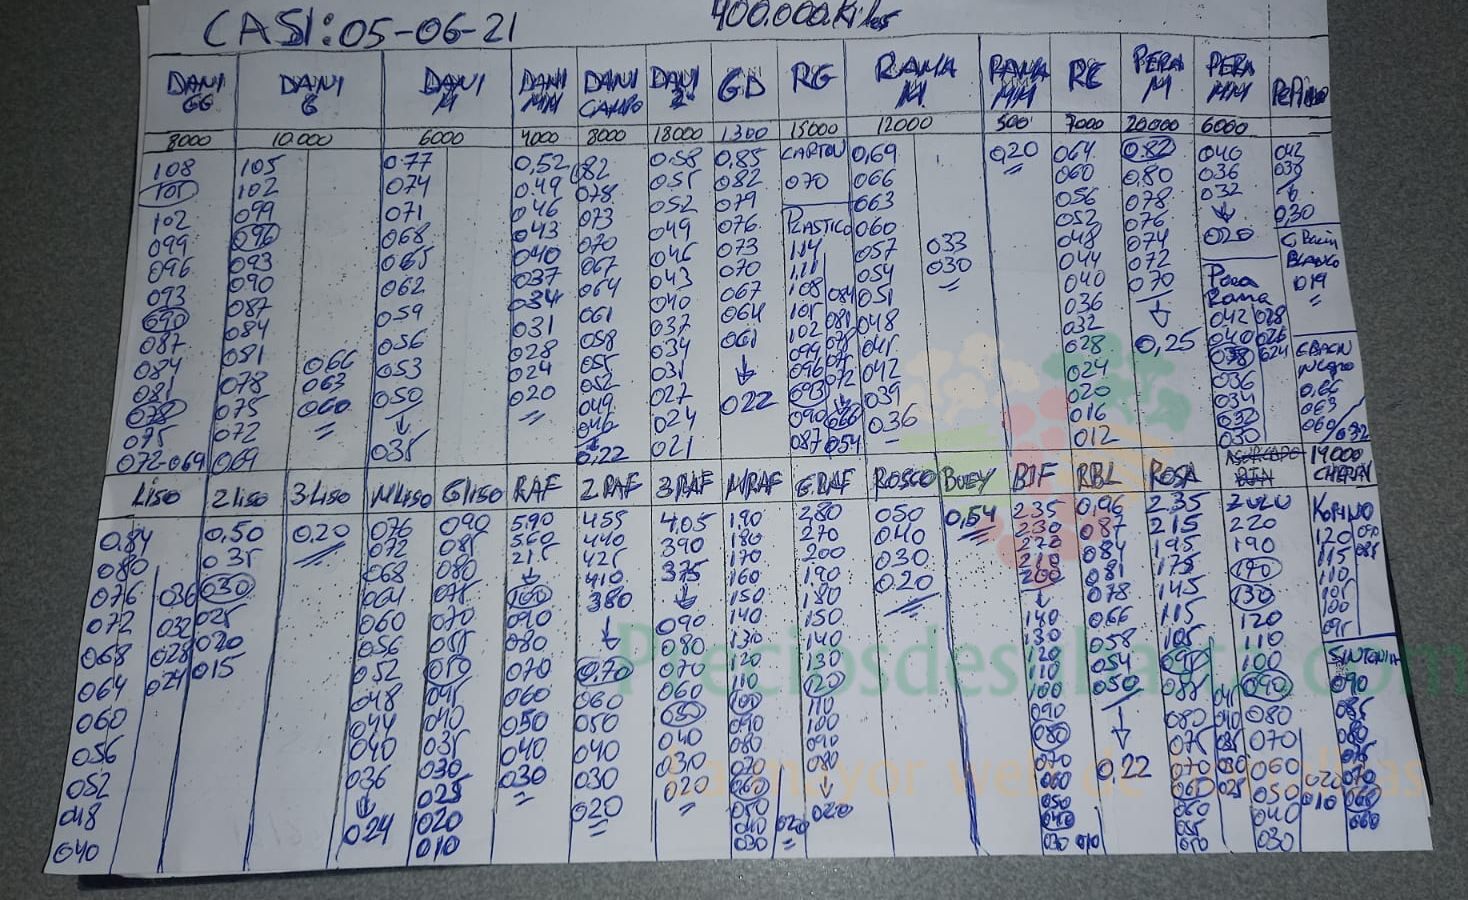 CASI: 05-06-21 400.000 Kilos
DANI GG DANI G DANI M DANI MM DANI CAMPO DANI 2 GD RG RAMA M RAMA MM RC PERA M PERA MM PePino
8000 10.000 6000 4000 8000 18000 1.300 15000 12000 500 7000 20.000 6000
108 105 0.77 0,52 082 0.58 0,85 CARTON 0,69 0,20 064 0.82 040 042
101 102 074 0.49 078 055 082 070 066 060 0,80 036 038
102 099 071 046 073 052 079 063 056 078 032 030
099 096 068 043 070 049 076 PLASTICO 060 052 076 020
096 093 065 040 067 046 073 114 057 033 048 074 G Bacin BLANCO
093 090 062 037 064 043 070 111 054 030 044 072 Pera Rama 019
090 087 059 034 061 040 067 108 084 051 040 070 042 028
087 084 056 031 058 037 064 105 081 048 036 0,25 040 026
084 081 066 053 028 055 034 061 102 078 045 032 038 024 GBACIN Negro
081 078 063 050 024 052 031 022 099 075 042 028 036 0,66
078 075 060 035 020 049 027 096 072 039 024 034 063
075 072 046 024 093 066 0.36 020 032 060/032
072-069 069 0,22 021 090 054 016 030
087 012
Liso 2 Liso 3 Liso M Liso G Liso RAF 2 RAF 3 RAF M RAF G RAF ROSCO Buey BIF RBL ROSA 14000 CHERRY
0,84 0,50 0,20 076 090 590 455 4,05 1.90 2.80 050 0,54 235 0,96 2.35 ZULU KOPINO
080 035 072 085 560 440 390 180 270 040 230 087 215 220 120 090
076 036 030 068 080 215 425 375 170 200 030 220 084 195 190 115 085
072 032 025 064 075 100 410 090 160 190 020 210 081 175 170 110
068 028 020 060 070 090 380 080 150 180 200 078 145 130 105
064 024 015 056 055 080 0,70 070 140 150 140 066 115 120 100
060 052 050 070 060 060 130 140 130 058 105 110 095
056 048 045 060 050 050 120 130 120 054 090 100 SINTONIA
052 044 040 050 040 040 110 120 110 050 085 090 090
048 040 035 040 030 030 100 110 100 0,22 080 080 085
040 036 030 030 020 020 090 100 090 075 070 080
024 025 080 090 080 070 060 075
020 070 080 070 065 050 070
010 060 020 060 060 040 060
050 050 055 030
040 020 040 050
030 030 010
Preciosdesubasta.com
La mayor web de